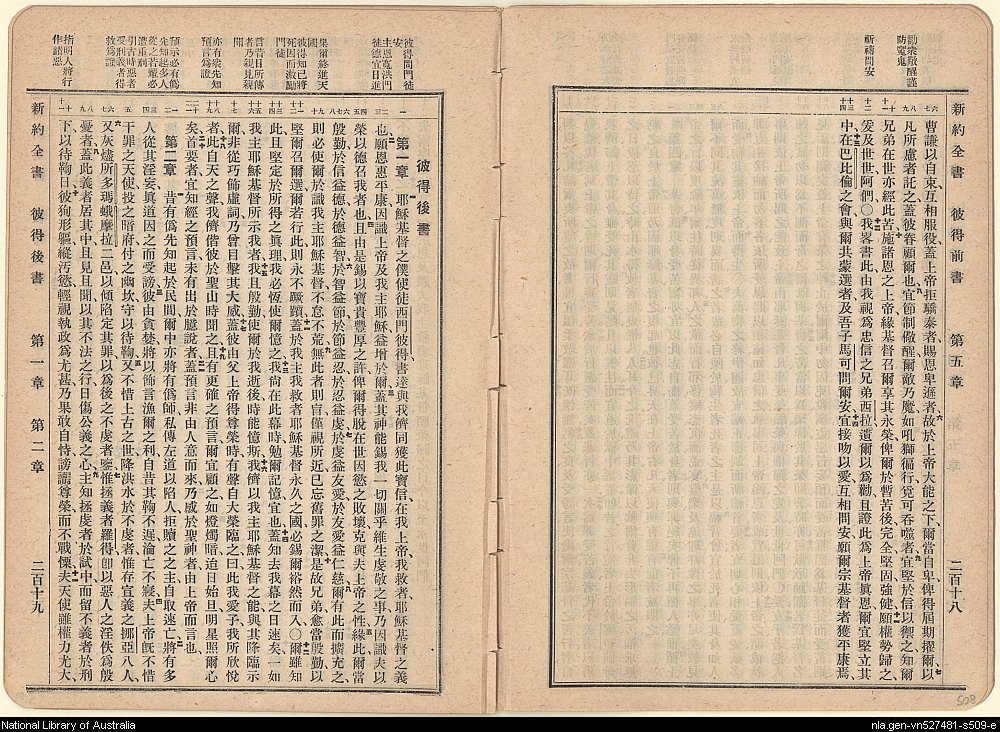 新約全書 彼得前書 第五章 二百十八
勸衆儆醒謹
防魔鬼
祈禱問安
曹謙以自束互相服役蓋上帝拒驕泰者賜恩卑遜者故於上帝大能之下爾當自卑俾得屆期擢爾以
凡所慮者託之蓋彼眷顧爾也宜節制儆醒爾敵乃魔如吼獅徧行覓可吞噬者宜堅於信以禦之知爾
兄弟在世亦經此苦施諸恩之上帝緣基督召爾享其永榮俾爾於暫苦後完全堅固強健願權勢歸之
爰及世世阿們〇我畧書此由我視爲忠信之兄弟西拉遺爾以爲勸且證此爲上帝眞恩爾宜堅立其
中在巴比倫之會與爾共蒙選者及吾子馬可問爾安宜接吻以愛互相問安願爾宗基督者獲平康焉
508
彼得問門徒
安
主恩寬洪門
徒德宜日進
果爾終進天
國
彼得知已將
死因而激勵
門徒
言昔日所傳
者乃親見親
聞
亦有衆先知
預言爲證
預示必有僞
先知起多人
從之若輩必
遭重刑
引古時惡者
受刑義者得
救爲證
指明人將行
作諸惡
彼得後書
第一章 耶穌基督之僕使徒西門彼得書達與我儕同獲此寶信在我上帝我救者耶穌基督之義
也願恩惠平康因識上帝及我主耶穌益增於爾蓋其神能錫我一切關乎維生虔敬之事乃因識夫以
榮以德召我者也且由是錫以寶貴豐厚之許俾爾得脫在世因慾之敗壞克與夫上帝之性緣此爾當
般勤於信益德於德益智於智益節於節益忍於忍益虔於虔益友愛於友愛益仁慈爾有此而擴充之
則必使爾於識我主耶穌基督不怠不荒無此者則盲僅視所近已忘舊罪之潔是故兄弟愈當般勤以
堅爾召爾選爾若行此則永不蹶躓蓋於我主我救者耶穌基督永久之國必錫爾裕然而入〇爾雖知
此且堅定於所得之眞理我必恆使爾憶之我尙在此幕時勉爾記憶宜也蓋知去我幕之日速矣一如
我主耶穌基督所示我者我且般勤使爾於我逝後時能憶斯我儕以我主耶穌基督之能與其降臨示
爾非從巧飾虛詞乃曾目擊其大威蓋彼由父上帝得尊榮時有聲自大榮臨之曰此我愛子我所欣悅
者此自天之聲我儕偕彼於聖山時聞之且有更確之預言爾宜顧之如燈燭暗迨日始旦明星照爾心
矣首要者宜知經之預言未有出於臆說者蓋預言非由人意而來乃感於聖神者由上帝而言也
第二章 昔有僞先知起於民間爾中亦將有僞師私傳左道以陷人拒贖之之主自取速亡將有多
人從其淫妄眞道因之而受謗彼由貪婪將以飾言漁爾之利自昔其鞫不遲淪亡不寢夫上帝旣不惜
干罪之天使投之暗府付之幽坎守以待鞫又不惜上古之世降洪水於不虔者惟存宜義之挪亞八人
又灰燼所多瑪蛾摩拉二邑以傾陷定其罪以爲後之不虔者鑒惟拯義者羅得卽以惡人之淫佚爲般
憂者蓋此義者居其中且見且聞以其不法之行日傷公義之心主知拯虔者於試中而留不義者於刑
下以待鞫日彼狥形軀縱汚慾輕視執政爲尤甚乃果敢自恃謗讟尊榮而不戰慄夫天使雖權力尤大
新約全書 彼得後書 第一章 第二章 二百十九
National Library of Australia
nla.gen-vn527481-s509-e